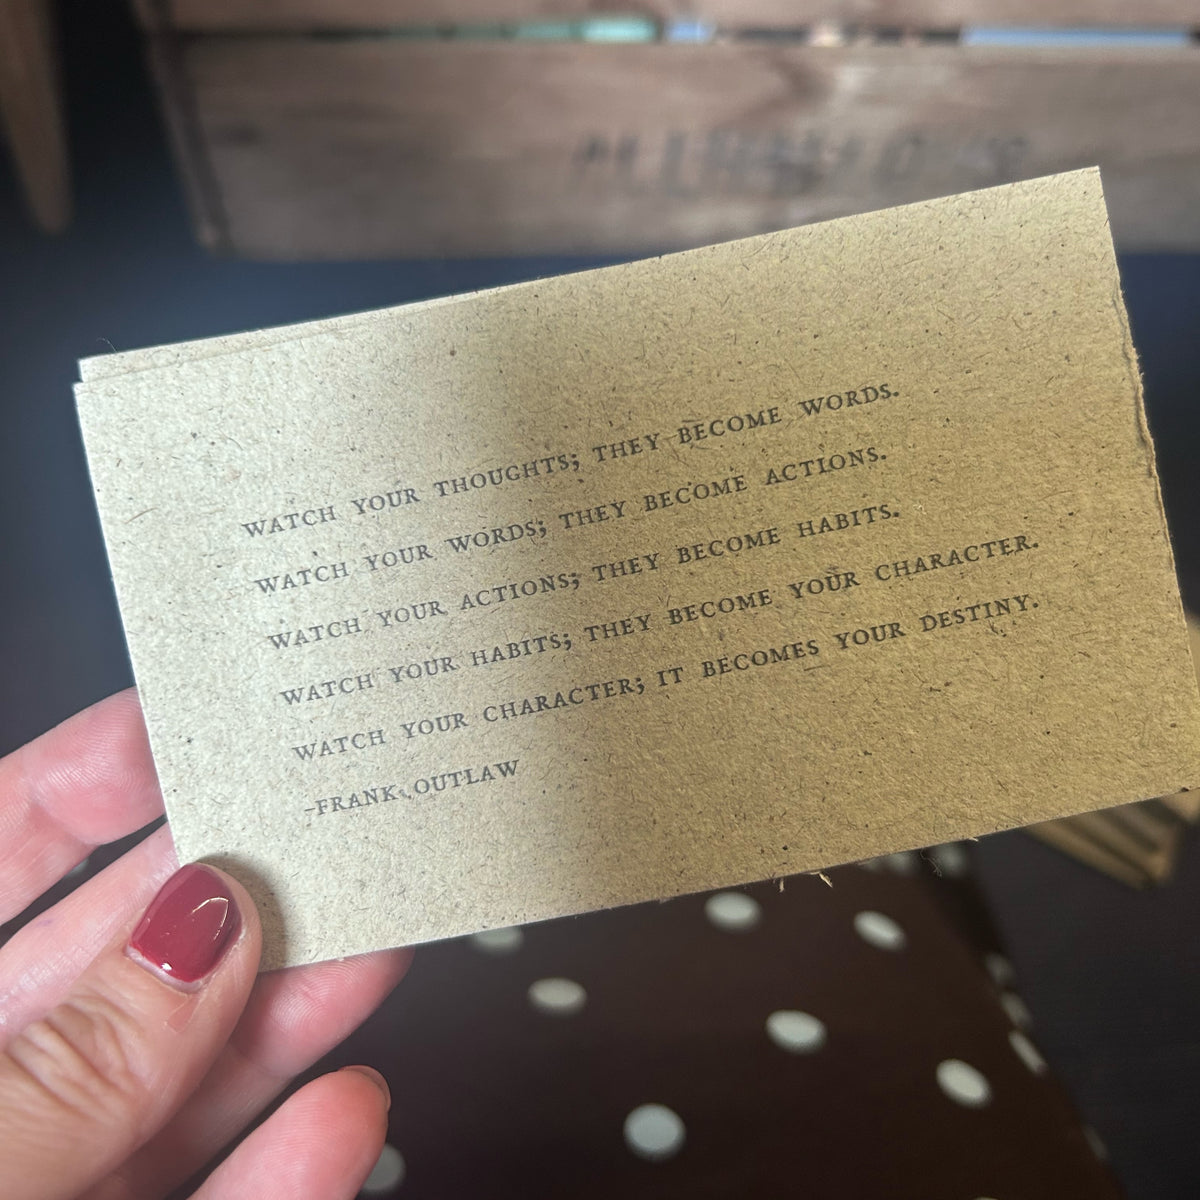 WATCH YOUR THOUGHTS; THEY BECOME WORDS.
WATCH YOUR WORDS; THEY BECOME ACTIONS.
WATCH YOUR ACTIONS; THEY BECOME HABITS.
WATCH YOUR HABITS; THEY BECOME YOUR CHARACTER.
WATCH YOUR CHARACTER; IT BECOMES YOUR DESTINY.
-FRANK OUTLAW